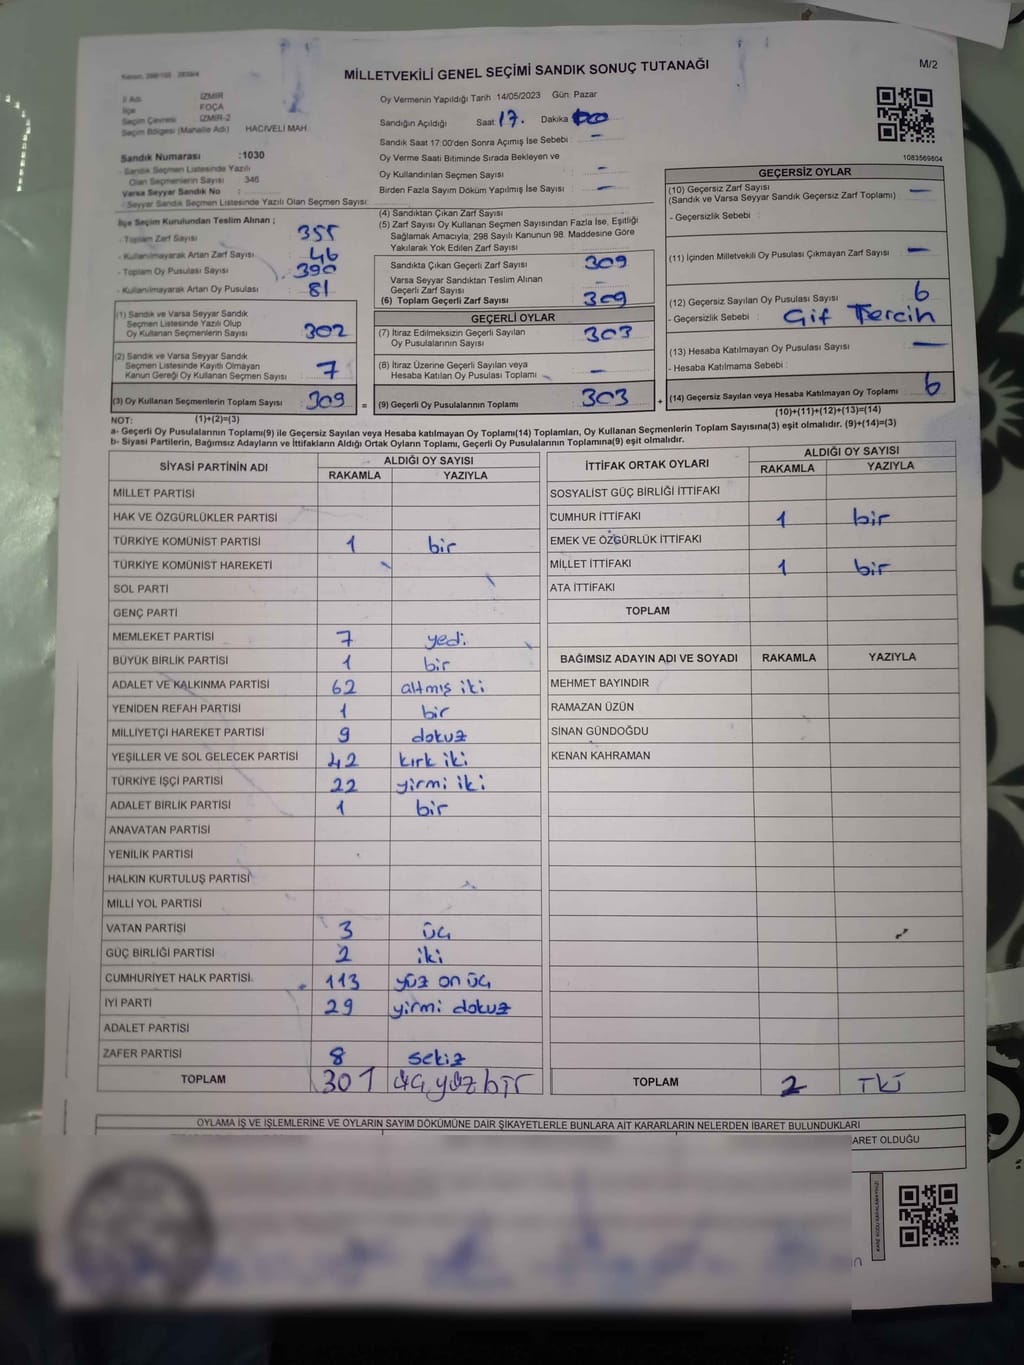 MİLLETVEKİLİ GENEL SEÇİMİ SANDIK SONUÇ TUTANAĞI
M/2
İl Adı İZMİR
İlçe FOÇA
Seçim Çevresi İZMİR-2
Seçim Bölgesi (Mahalle Adı) HACIVELİ MAH.
Sandık Numarası :1030
- Sandık Seçmen Listesinde Yazılı
Olan Seçmenlerin Sayısı 346
Varsa Seyyar Sandık No :
- Seyyar Sandık Seçmen Listesinde Yazılı Olan Seçmen Sayısı:
Oy Vermenin Yapıldığı Tarih :14/05/2023 Gün: Pazar
Sandığın Açıldığı Saat 17. Dakika 00
Sandık Saat 17:00'den Sonra Açımış İse Sebebi : —
Oy Verme Saati Bitiminde Sırada Bekleyen ve
Oy Kullandırılan Seçmen Sayısı : —
Birden Fazla Sayım Döküm Yapılmış İse Sayısı : —
1083569604
İlçe Seçim Kurulundan Teslim Alınan ;
- Toplam Zarf Sayısı : 355
- Kullanılmayarak Artan Zarf Sayısı : 46
- Toplam Oy Pusulası Sayısı : 390
- Kullanılmayarak Artan Oy Pusulası : 81
(1) Sandık ve Varsa Seyyar Sandık
Seçmen Listesinde Yazılı Olup
Oy Kullanan Seçmenlerin Sayısı : 302
(2) Sandık ve Varsa Seyyar Sandık
Seçmen Listesinde Kayıtlı Olmayan
Kanun Gereği Oy Kullanan Seçmen Sayısı : 7
(3) Oy Kullanan Seçmenlerin Toplam Sayısı : 309
(1)+(2)=(3)
(4) Sandıktan Çıkan Zarf Sayısı :
(5) Zarf Sayısı Oy Kullanan Seçmen Sayısından Fazla İse, Eşitliği
Sağlamak Amacıyla, 298 Sayılı Kanunun 98. Maddesine Göre
Yakılarak Yok Edilen Zarf Sayısı :
Sandıkta Çıkan Geçerli Zarf Sayısı : 309
Varsa Seyyar Sandıktan Teslim Alınan
Geçerli Zarf Sayısı :
(6) Toplam Geçerli Zarf Sayısı : 309
GEÇERLİ OYLAR
(7) İtiraz Edilmeksizin Geçerli Sayılan
Oy Pusulalarının Sayısı : 303
(8) İtiraz Üzerine Geçerli Sayılan veya
Hesaba Katılan Oy Pusulası Toplamı : —
= (9) Geçerli Oy Pusulalarının Toplamı : 303
GEÇERSİZ OYLAR
(10) Geçersiz Zarf Sayısı : —
(Sandık ve Varsa Seyyar Sandık Geçersiz Zarf Toplamı)
- Geçersizlik Sebebi :
(11) İçinden Milletvekili Oy Pusulası Çıkmayan Zarf Sayısı : —
(12) Geçersiz Sayılan Oy Pusulası Sayısı : 6
- Geçersizlik Sebebi : Çift Tercih
(13) Hesaba Katılmayan Oy Pusulası Sayısı : —
- Hesaba Katılmama Sebebi :
+ (14) Geçersiz Sayılan veya Hesaba Katılmayan Oy Toplamı : 6
(10)+(11)+(12)+(13)=(14)
NOT:
a- Geçerli Oy Pusulalarının Toplamı(9) ile Geçersiz Sayılan veya Hesaba katılmayan Oy Toplamı(14) Toplamları, Oy Kullanan Seçmenlerin Toplam Sayısına(3) eşit olmalıdır. (9)+(14)=(3)
b- Siyasi Partilerin, Bağımsız Adayların ve İttifakların Aldığı Ortak Oyların Toplamı, Geçerli Oy Pusulalarının Toplamına(9) eşit olmalıdır.
SİYASİ PARTİNİN ADI ALDIĞI OY SAYISI
RAKAMLA YAZIYLA
MİLLET PARTİSİ
HAK VE ÖZGÜRLÜKLER PARTİSİ
TÜRKİYE KOMÜNİST PARTİSİ 1 bir
TÜRKİYE KOMÜNİST HAREKETİ
SOL PARTİ
GENÇ PARTİ
MEMLEKET PARTİSİ 7 yedi
BÜYÜK BİRLİK PARTİSİ 1 bir
ADALET VE KALKINMA PARTİSİ 62 altmış iki
YENİDEN REFAH PARTİSİ 1 bir
MİLLİYETÇİ HAREKET PARTİSİ 9 dokuz
YEŞİLLER VE SOL GELECEK PARTİSİ 42 kırk iki
TÜRKİYE İŞÇİ PARTİSİ 22 yirmi iki
ADALET BİRLİK PARTİSİ 1 bir
ANAVATAN PARTİSİ
YENİLİK PARTİSİ
HALKIN KURTULUŞ PARTİSİ
MİLLİ YOL PARTİSİ
VATAN PARTİSİ 3 üç
GÜÇ BİRLİĞİ PARTİSİ 2 iki
CUMHURİYET HALK PARTİSİ 113 yüz on üç
İYİ PARTİ 29 yirmi dokuz
ADALET PARTİSİ
ZAFER PARTİSİ 8 sekiz
TOPLAM 301 üç yüz bir
İTTİFAK ORTAK OYLARI ALDIĞI OY SAYISI
RAKAMLA YAZIYLA
SOSYALİST GÜÇ BİRLİĞİ İTTİFAKI
CUMHUR İTTİFAKI 1 bir
EMEK VE ÖZGÜRLÜK İTTİFAKI
MİLLET İTTİFAKI 1 bir
ATA İTTİFAKI
TOPLAM
BAĞIMSIZ ADAYIN ADI VE SOYADI RAKAMLA YAZIYLA
MEHMET BAYINDIR
RAMAZAN ÜZÜN
SİNAN GÜNDOĞDU
KENAN KAHRAMAN
TOPLAM 2 İKİ
OYLAMA İŞ VE İŞLEMLERİNE VE OYLARIN SAYIM DÖKÜMÜNE DAİR ŞİKAYETLERLE BUNLARA AİT KARARLARIN NELERDEN İBARET BULUNDUKLARI
ARET OLDUĞU